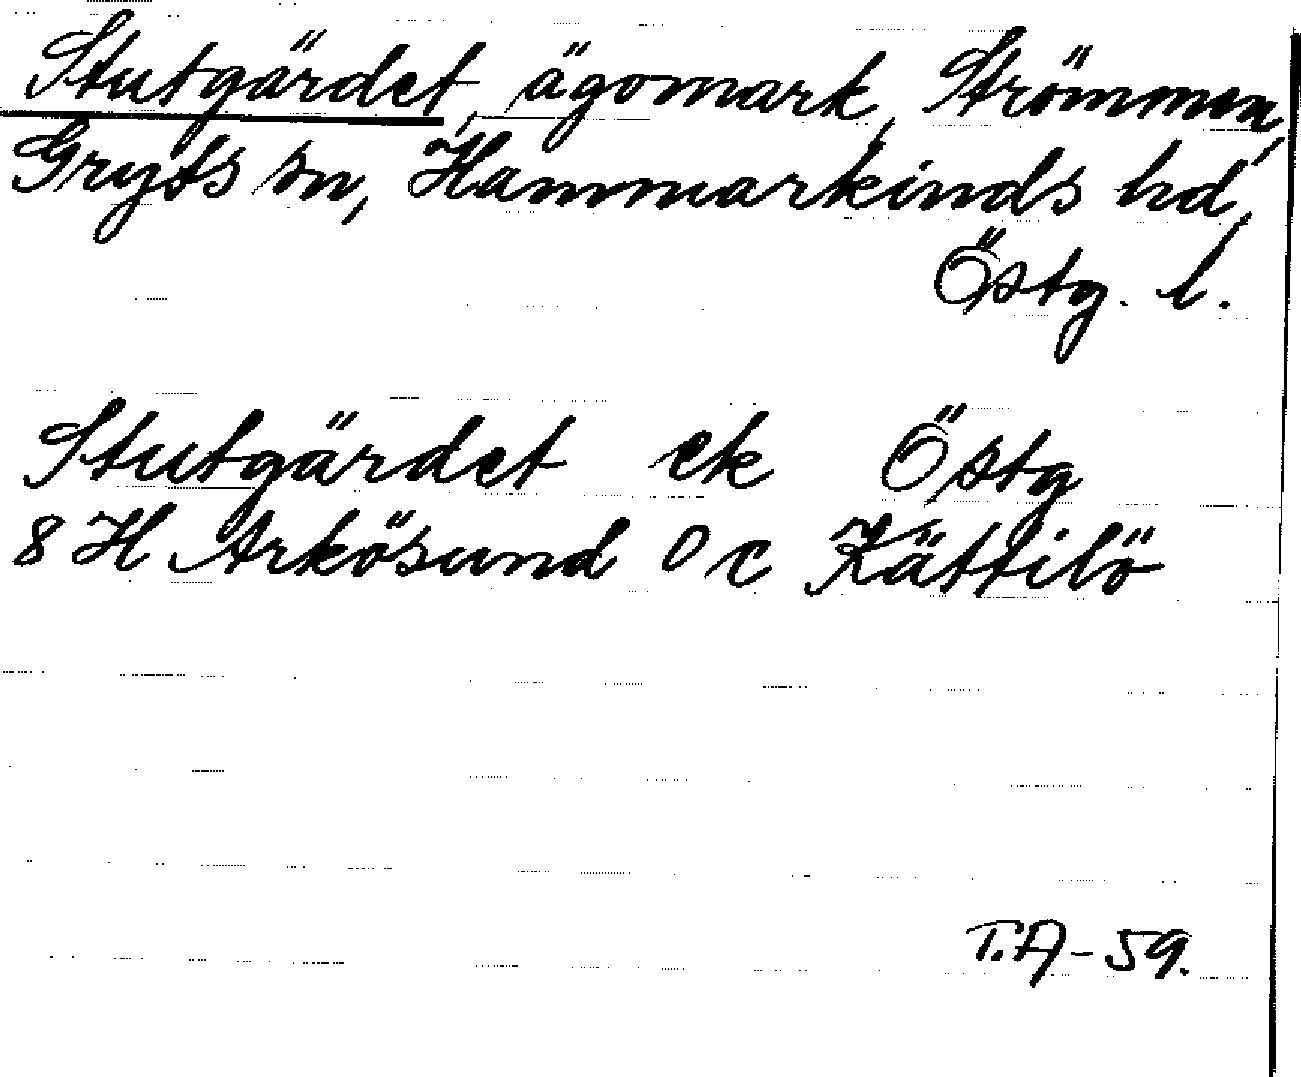 Stutgärdet, ägomark, Strömmen,
Gryts sn, Hammarkinds hd,
Östg. l.
Stutgärdet ek Östg
8 H Arkösund O c Kättilö
T.A-59.